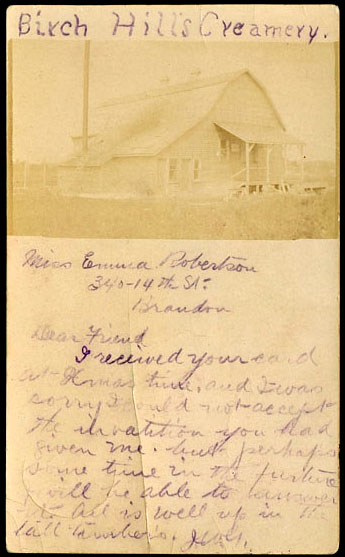 Birch Hills Creamery.
Miss Emma Robertson
340-14th St.
Brandon
Dear Friend
I received your card
at Xmas time. and I was
sorry I could not accept
the invatition you had
given me. but perhaps
some time in the future
will be able to however
all is well up in the
tall timbers.